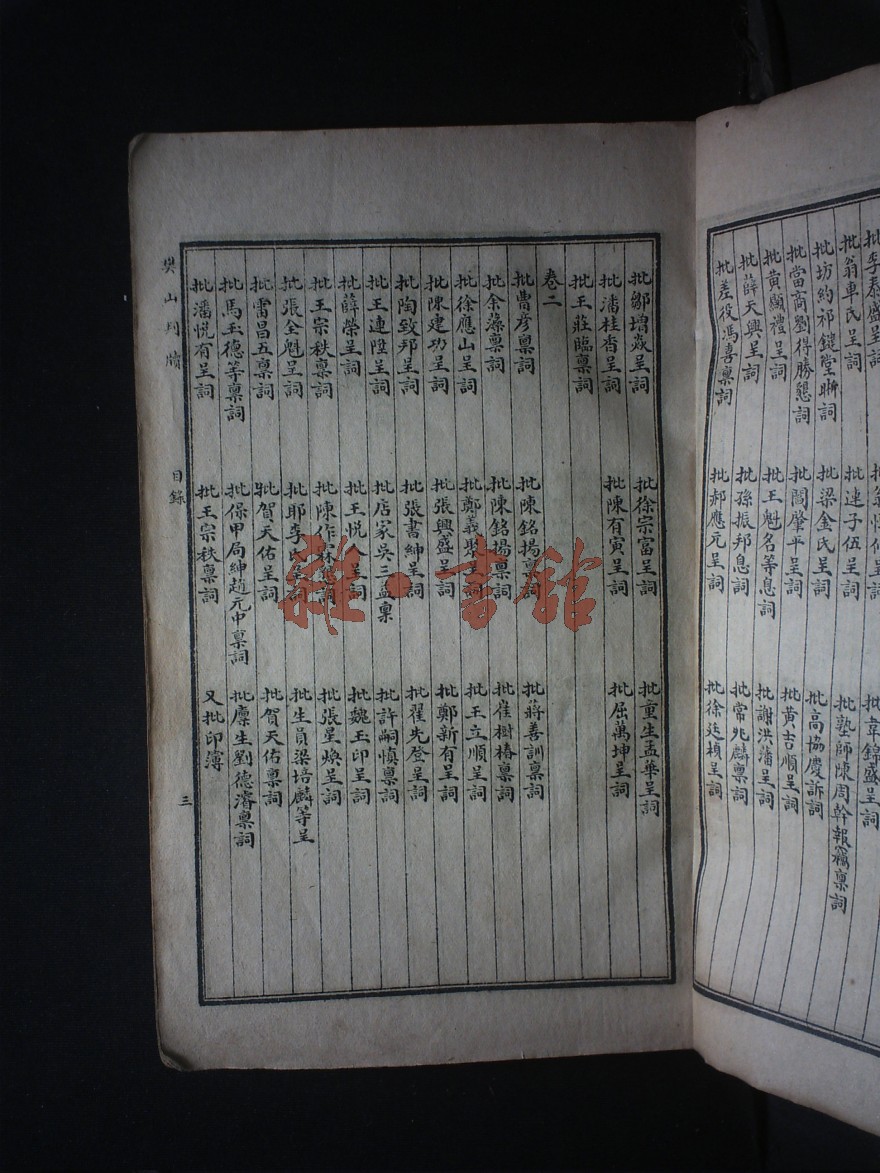 批李泰盛呈詞 批韋錦盛呈詞
批翁車氏呈詞 批逯子伍呈詞 批塾師陳周幹報竊稟詞
批坊約祁鏡堂聯詞 批梁金氏呈詞 批高協慶訴詞
批當商劉得勝懇詞 批閻肇平呈詞 批黄吉順呈詞
批黄顯禮呈詞 批王魁名等息詞 批謝洪藩呈詞
批薛天興呈詞 批孫振邦息詞 批常兆麟稟詞
批差役馮喜稟詞 批郝應元呈詞 批徐廷楨呈詞
批鄒增焱呈詞 批徐宗富呈詞 批童生孟華呈詞
批潘桂香呈詞 批陳有寅呈詞 批屈萬坤呈詞
批王莊臨稟詞
卷二
批曹彦稟詞 批陳銘揚稟詞 批蔣善訓稟詞
批余藻稟詞 批陳銘揚稟詞 批崔樹椿稟詞
批徐應山呈詞 批鄭義聚呈詞 批王立順呈詞
批陳建功呈詞 批張興盛呈詞 批鄭新有呈詞
批陶致邦呈詞 批張書紳呈詞 批翟先登呈詞
批王連陞呈詞 批店家吳三孟稟 批許嗣慎稟詞
批薛榮呈詞 批王悅人呈詞 批魏玉印呈詞
批王宗秩稟詞 批陳作霖稟詞 批張星煥呈詞
批張全魁呈詞 批耶李氏呈詞 批生員梁培麟等呈
批雷昌五稟詞 批賀天佑呈詞 批賀天佑稟詞
批馬玉德等稟詞 批保甲局紳趙元中稟詞 批廩生劉德濬稟詞
批潘悅有呈詞 批王宗秩稟詞 又批印簿
樊山判牘 目錄 三
雜·書館